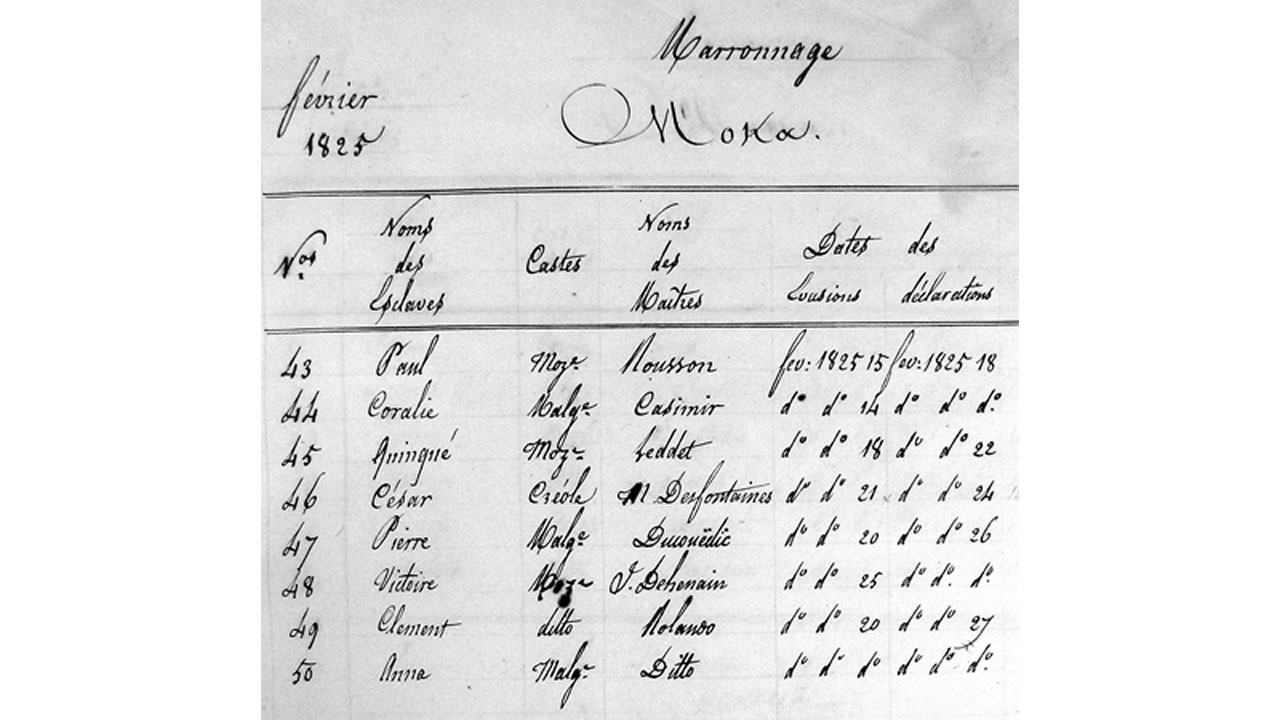 Marronnage
février
1825
Moka.
Nos Noms des Esclaves Castes Noms des Maîtres Dates des
Evasions déclarations
43 Paul Moze Rousson fev: 1825 15 fev: 1825 18
44 Coralie Malge Casimir do do 14 do do do
45 Quinqué Moze Leddet do do 18 do do 22
46 César Créole M Desfontaines do do 21 do do 24
47 Pierre Malge Ducouëdic do do 20 do do 26
48 Victoire Moze J. Dehenain do do 25 do do do
49 Clement ditto Rolando do do 20 do do 27
50 Anna Malge Ditto do do do do do do